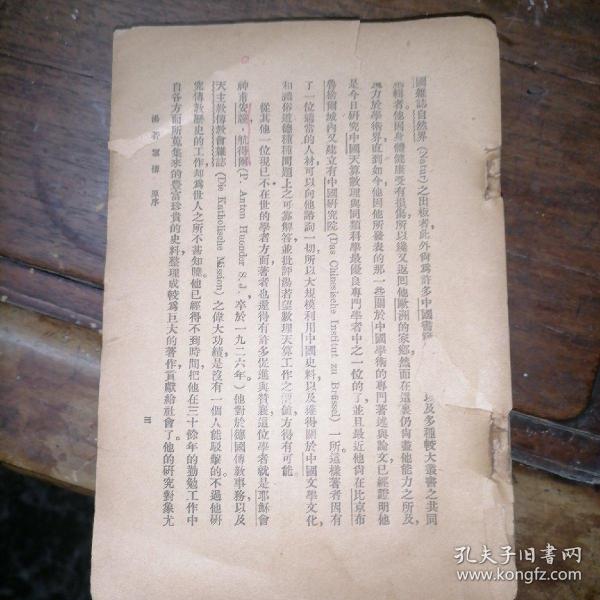 國雜誌自然界(Natur)之出版者此外尚爲許多中國書籍以及多種較大叢書之共同
輯者他因身體健康受有損傷所以幾又返回他歐洲的家鄉然而在這裏仍尚盡他能力之所及,
力於學術界直到如今他因他所發表的那一些關於中國學術的專門著述與論文已經證明他
是今日研究中國天算數理與同類科學最優良專門學者中之一位的了並且最近他尚在比京布
魯捨爾城內又建立有中國研究院(Das Chinesische Institut zu Brüssel)一所這樣著者因有
了一位適當的人材可以向他諮詢一切所以大規模利用中國史料以及獲得關於中國文學文化
和禮俗道德種種問題上之可靠解答並批評湯若望數理天算工作之價値方得有可能。
從其他一位現已不在世的學者方面著者也還得有許多促進與贊襄這位學者就是耶穌會
神甫安騰・航得爾(P. Anton Huonder S. J., 卒於一九二六年)他對於德國傳教事務以及
天主教傳教會雜誌(Die Katholische Mission)之偉大功績是沒有一個人能駁擊的不過他研
究傳教歷史的工作却爲世人之所不甚知曉。他已經得不到時間,把他在三十餘年的勤勉工作中
自各方面所蒐集來的豐富珍貴的史料整理成較爲巨大的著作,貢獻給社會了。他的研究對象尤
湯若望傳 原序
三
孔夫子旧書网
www.kongfz.com